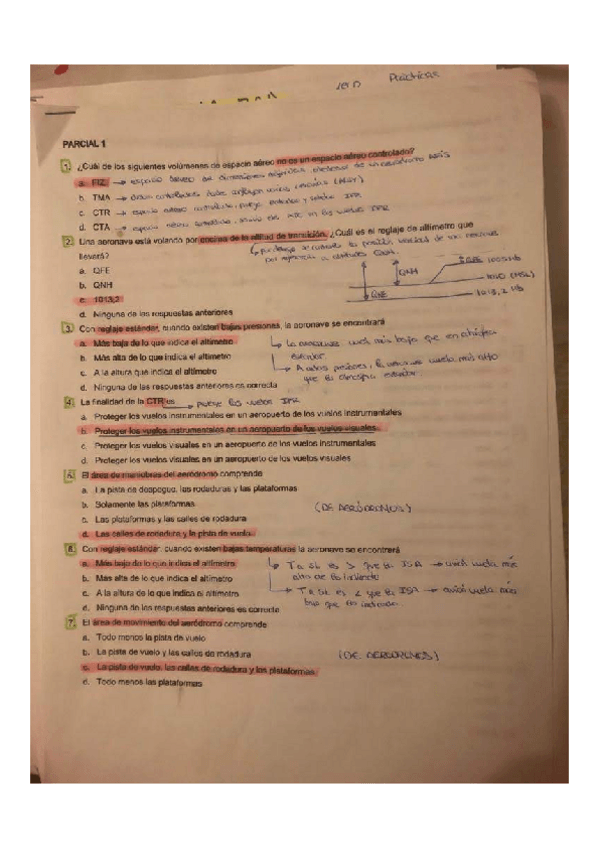 Prácticas
PARCIAL 1
1. ¿Cuál de los siguientes volúmenes de espacio aéreo no es un espacio aéreo controlado?
a. FIZ → espacio aéreo de dimensiones
b. TMA →
c. CTR → espacio aéreo controlado, IFR
d. CTA → espacio aéreo controlado, IFR
2. Una aeronave está volando por encima de la altitud de transición. ¿Cuál es el reglaje de altímetro que
llevará?
a. QFE
b. QNH
c. 1013,2
d. Ninguna de las respuestas anteriores
QNH
QFE
(MSL)
1013,2 Mb
3. Con reglaje estándar, cuando existen bajas presiones, la aeronave se encontrará
a. Más baja de lo que indica el altímetro
b. Más alta de lo que indica el altímetro
c. A la altura que indica el altímetro
d. Ninguna de las respuestas anteriores es correcta
↳ La aeronave vuela más bajo que en atmósfera
estándar
↳ A altas presiones, la aeronave vuela más alto
que la atmósfera estándar.
4. La finalidad de la CTR es → proteger los vuelos IFR
a. Proteger los vuelos instrumentales en un aeropuerto de los vuelos instrumentales
b. Proteger los vuelos instrumentales en un aeropuerto de los vuelos visuales
c. Proteger los vuelos visuales en un aeropuerto de los vuelos instrumentales
d. Proteger los vuelos visuales en un aeropuerto de los vuelos visuales
5. El área de maniobras del aeródromo comprende
a. La pista de despegue, las rodaduras y las plataformas
b. Solamente las plataformas
c. Las plataformas y las calles de rodadura
d. Las calles de rodadura y la pista de vuelo
(DE AERÓDROMOS)
6. Con reglaje estándar, cuando existen bajas temperaturas la aeronave se encontrará
a. Más baja de lo que indica el altímetro
b. Más alta de lo que indica el altímetro
c. A la altura de lo que indica el altímetro
d. Ninguna de las respuestas anteriores es correcta
↳ Tª si es > que la ISA → avión vuela más
alto de lo indicado
↳ Tª si es < que la ISA → avión vuela más
bajo que lo indicado.
7. El área de movimiento del aeródromo comprende
a. Todo menos la pista de vuelo
b. La pista de vuelo y las calles de rodadura
c. La pista de vuelo, las calles de rodadura y las plataformas
d. Todo menos las plataformas
(DE AERÓDROMOS)